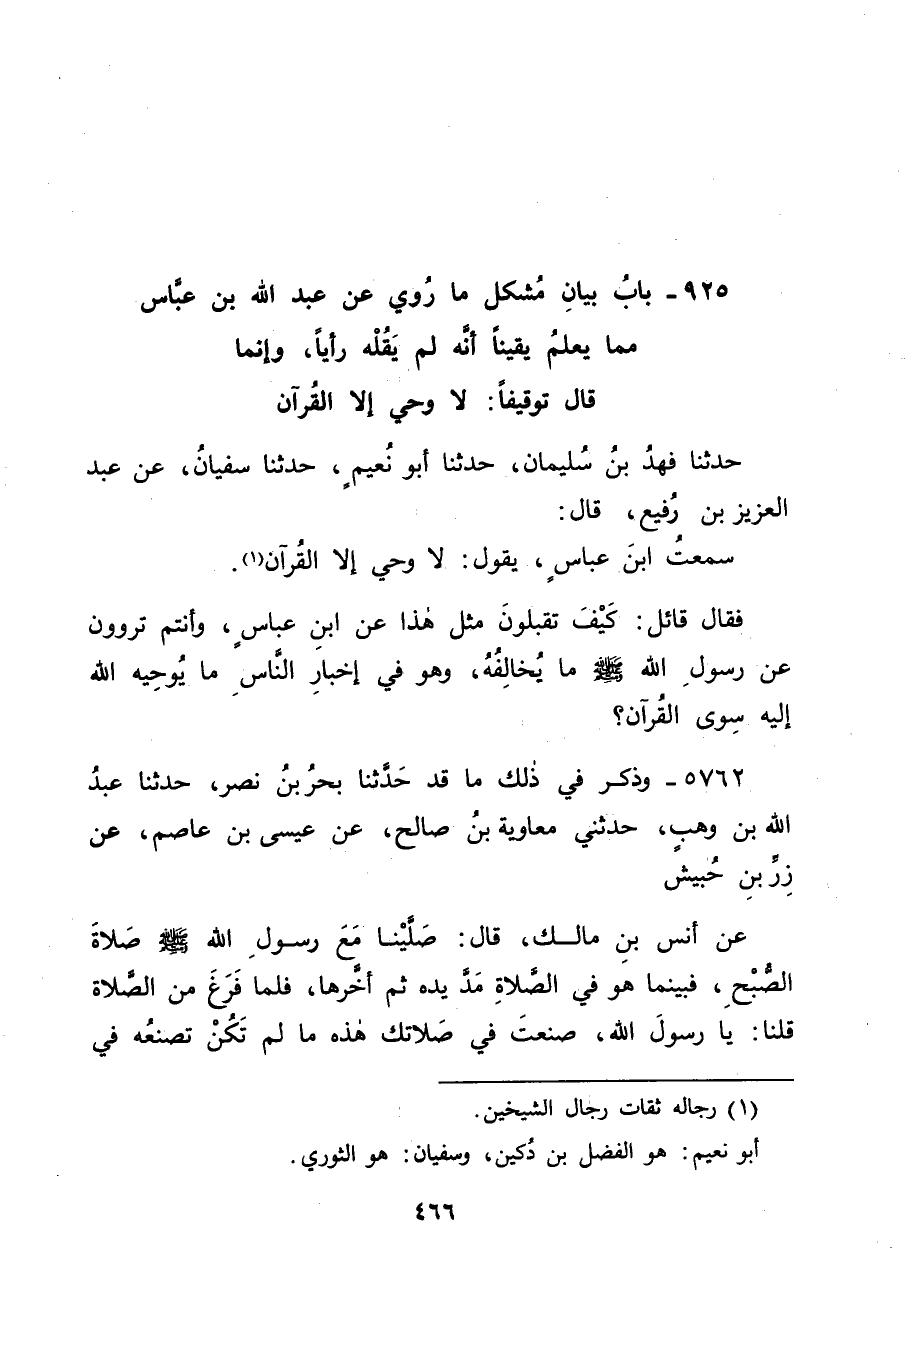 ٩٢٥ - بابُ بيانِ مُشكل ما رُوي عن عبد الله بن عبَّاس
مما يعلمُ يقيناً أنَّه لم يَقُلْه رأياً، وإنما
قال توقيفاً: لا وحي إلا القُرآن
حدثنا فهدُ بنُ سُليمان، حدثنا أبو نُعيمٍ، حدثنا سفيانُ، عن عبد
العزيز بن رُفيع، قال:
سمعتُ ابنَ عباسٍ، يقول: لا وحي إلا القُرآن(١).
فقال قائل: كَيْفَ تقبلونَ مثل هٰذا عن ابنِ عباسٍ، وأنتم تروون
عن رسولِ الله ﷺ ما يُخالِفُهُ، وهو في إخبارِ النَّاسِ ما يُوحِيه الله
إليه سِوى القُرآن؟
٥٧٦٢ - وذكـر في ذٰلك ما قد حَدَّثنا بحرُ بنُ نصر، حدثنا عبدُ
الله بن وهبٍ، حدثني معاوية بنُ صالح، عن عيسى بن عاصم، عن
زِرِّ بنِ حُبيش
عن أنس بنِ مالـك، قال: صَلَّيْنـا مَعَ رسـولِ الله ﷺ صَلاةَ
الصُّبْحِ، فبينما هو في الصَّلاةِ مَدَّ يده ثم أخَّرها، فلما فَرَغَ من الصَّلاة
قلنا: يا رسولَ الله، صنعتَ في صَلاتك هٰذه ما لم تَكُنْ تصنعُه في
(١) رجاله ثقات رجال الشيخين.
أبو نعيم: هو الفضل بن دُكين، وسفيان: هو الثوري.
٤٦٦